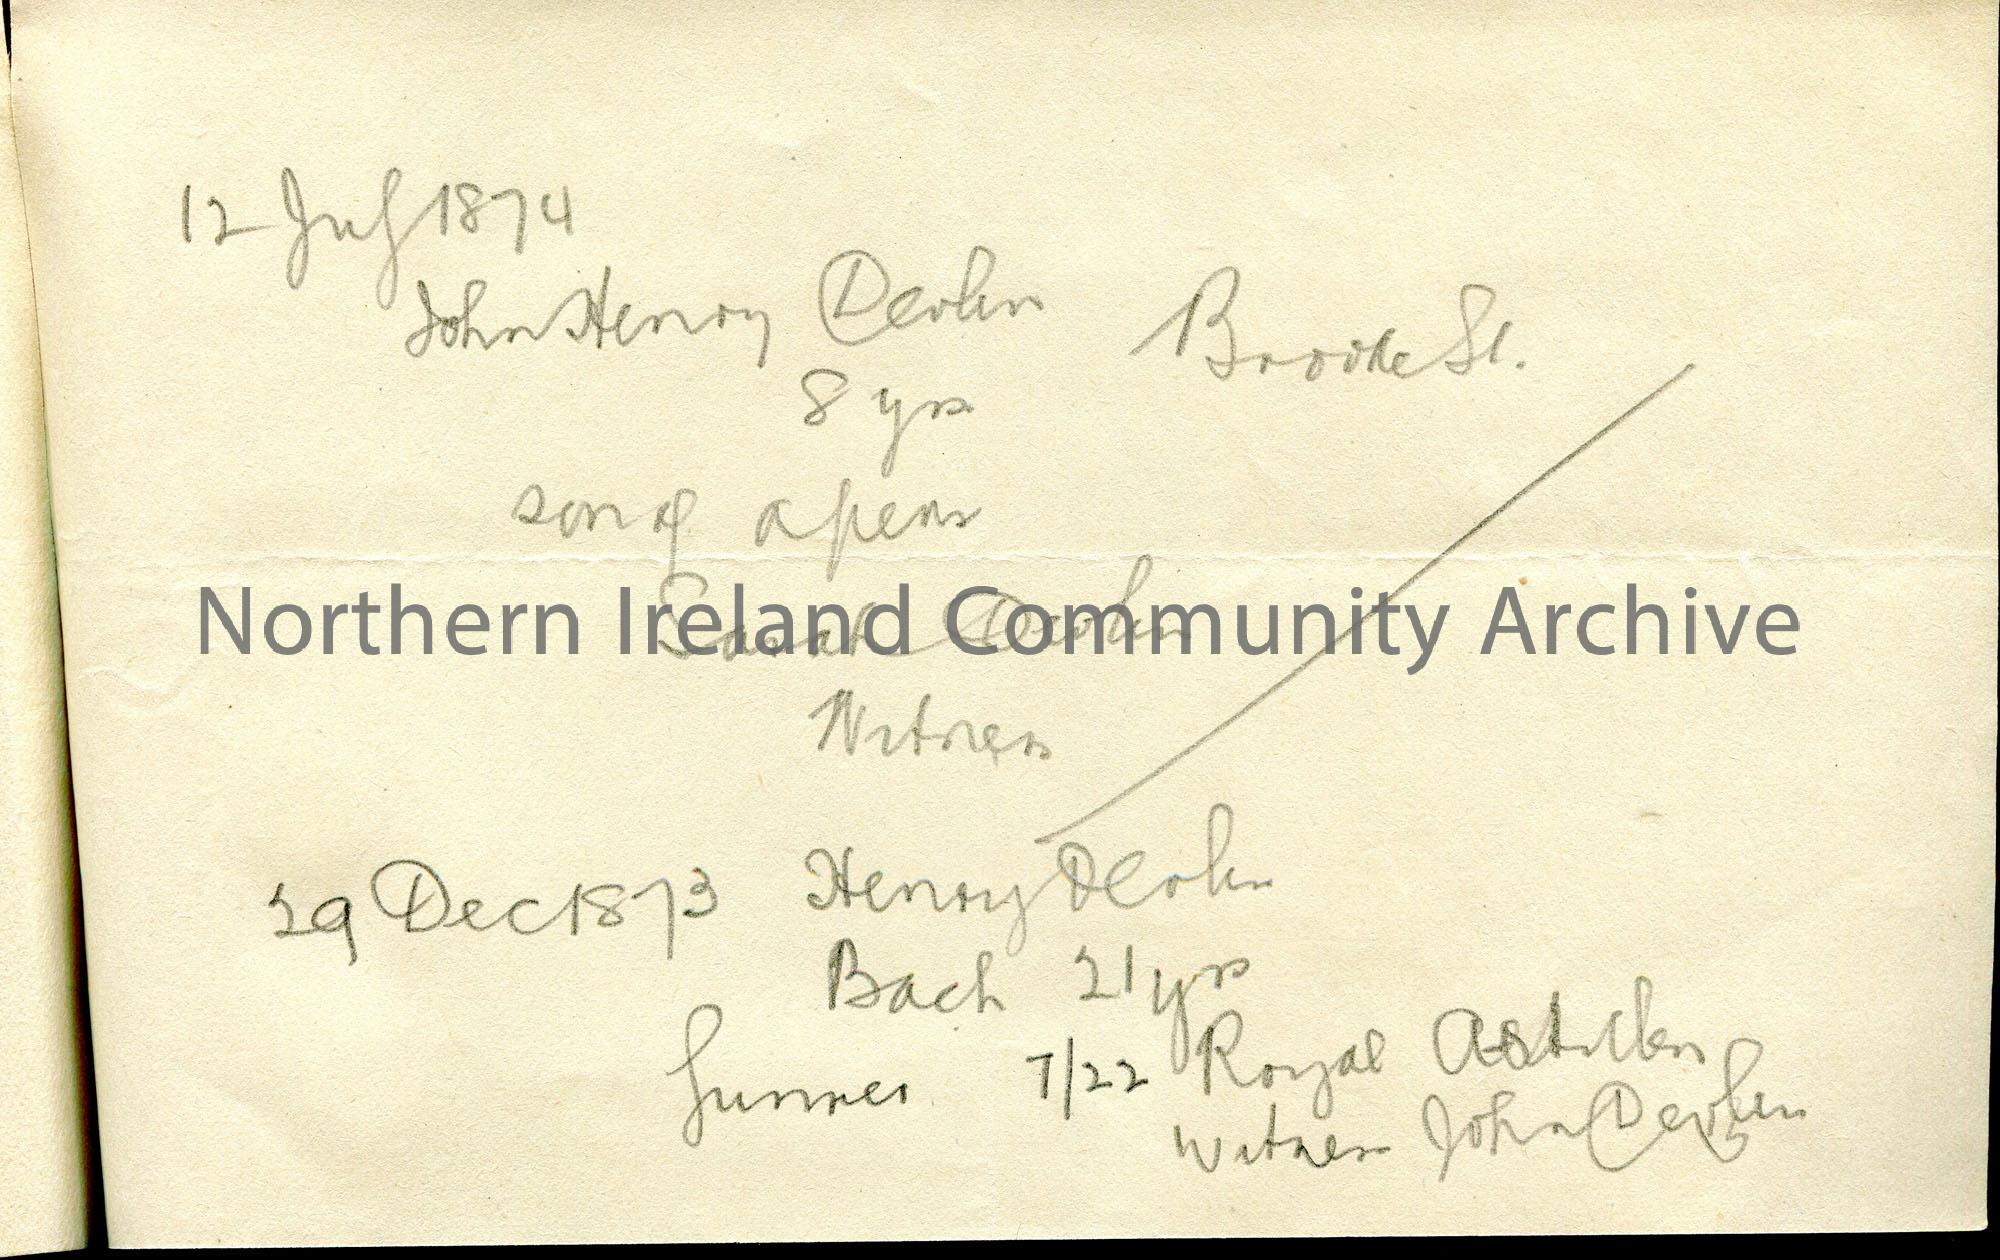 12 July 1874
John Henry Devlin Brooke St.
8 yrs
son of a pens
Sarah Devlin
Northern Ireland Community Archive
Witness
29 Dec 1873 Henry Devlin
Bach 21 yrs
Gunner 7/22 Royal Artillery
Witness John Devlin